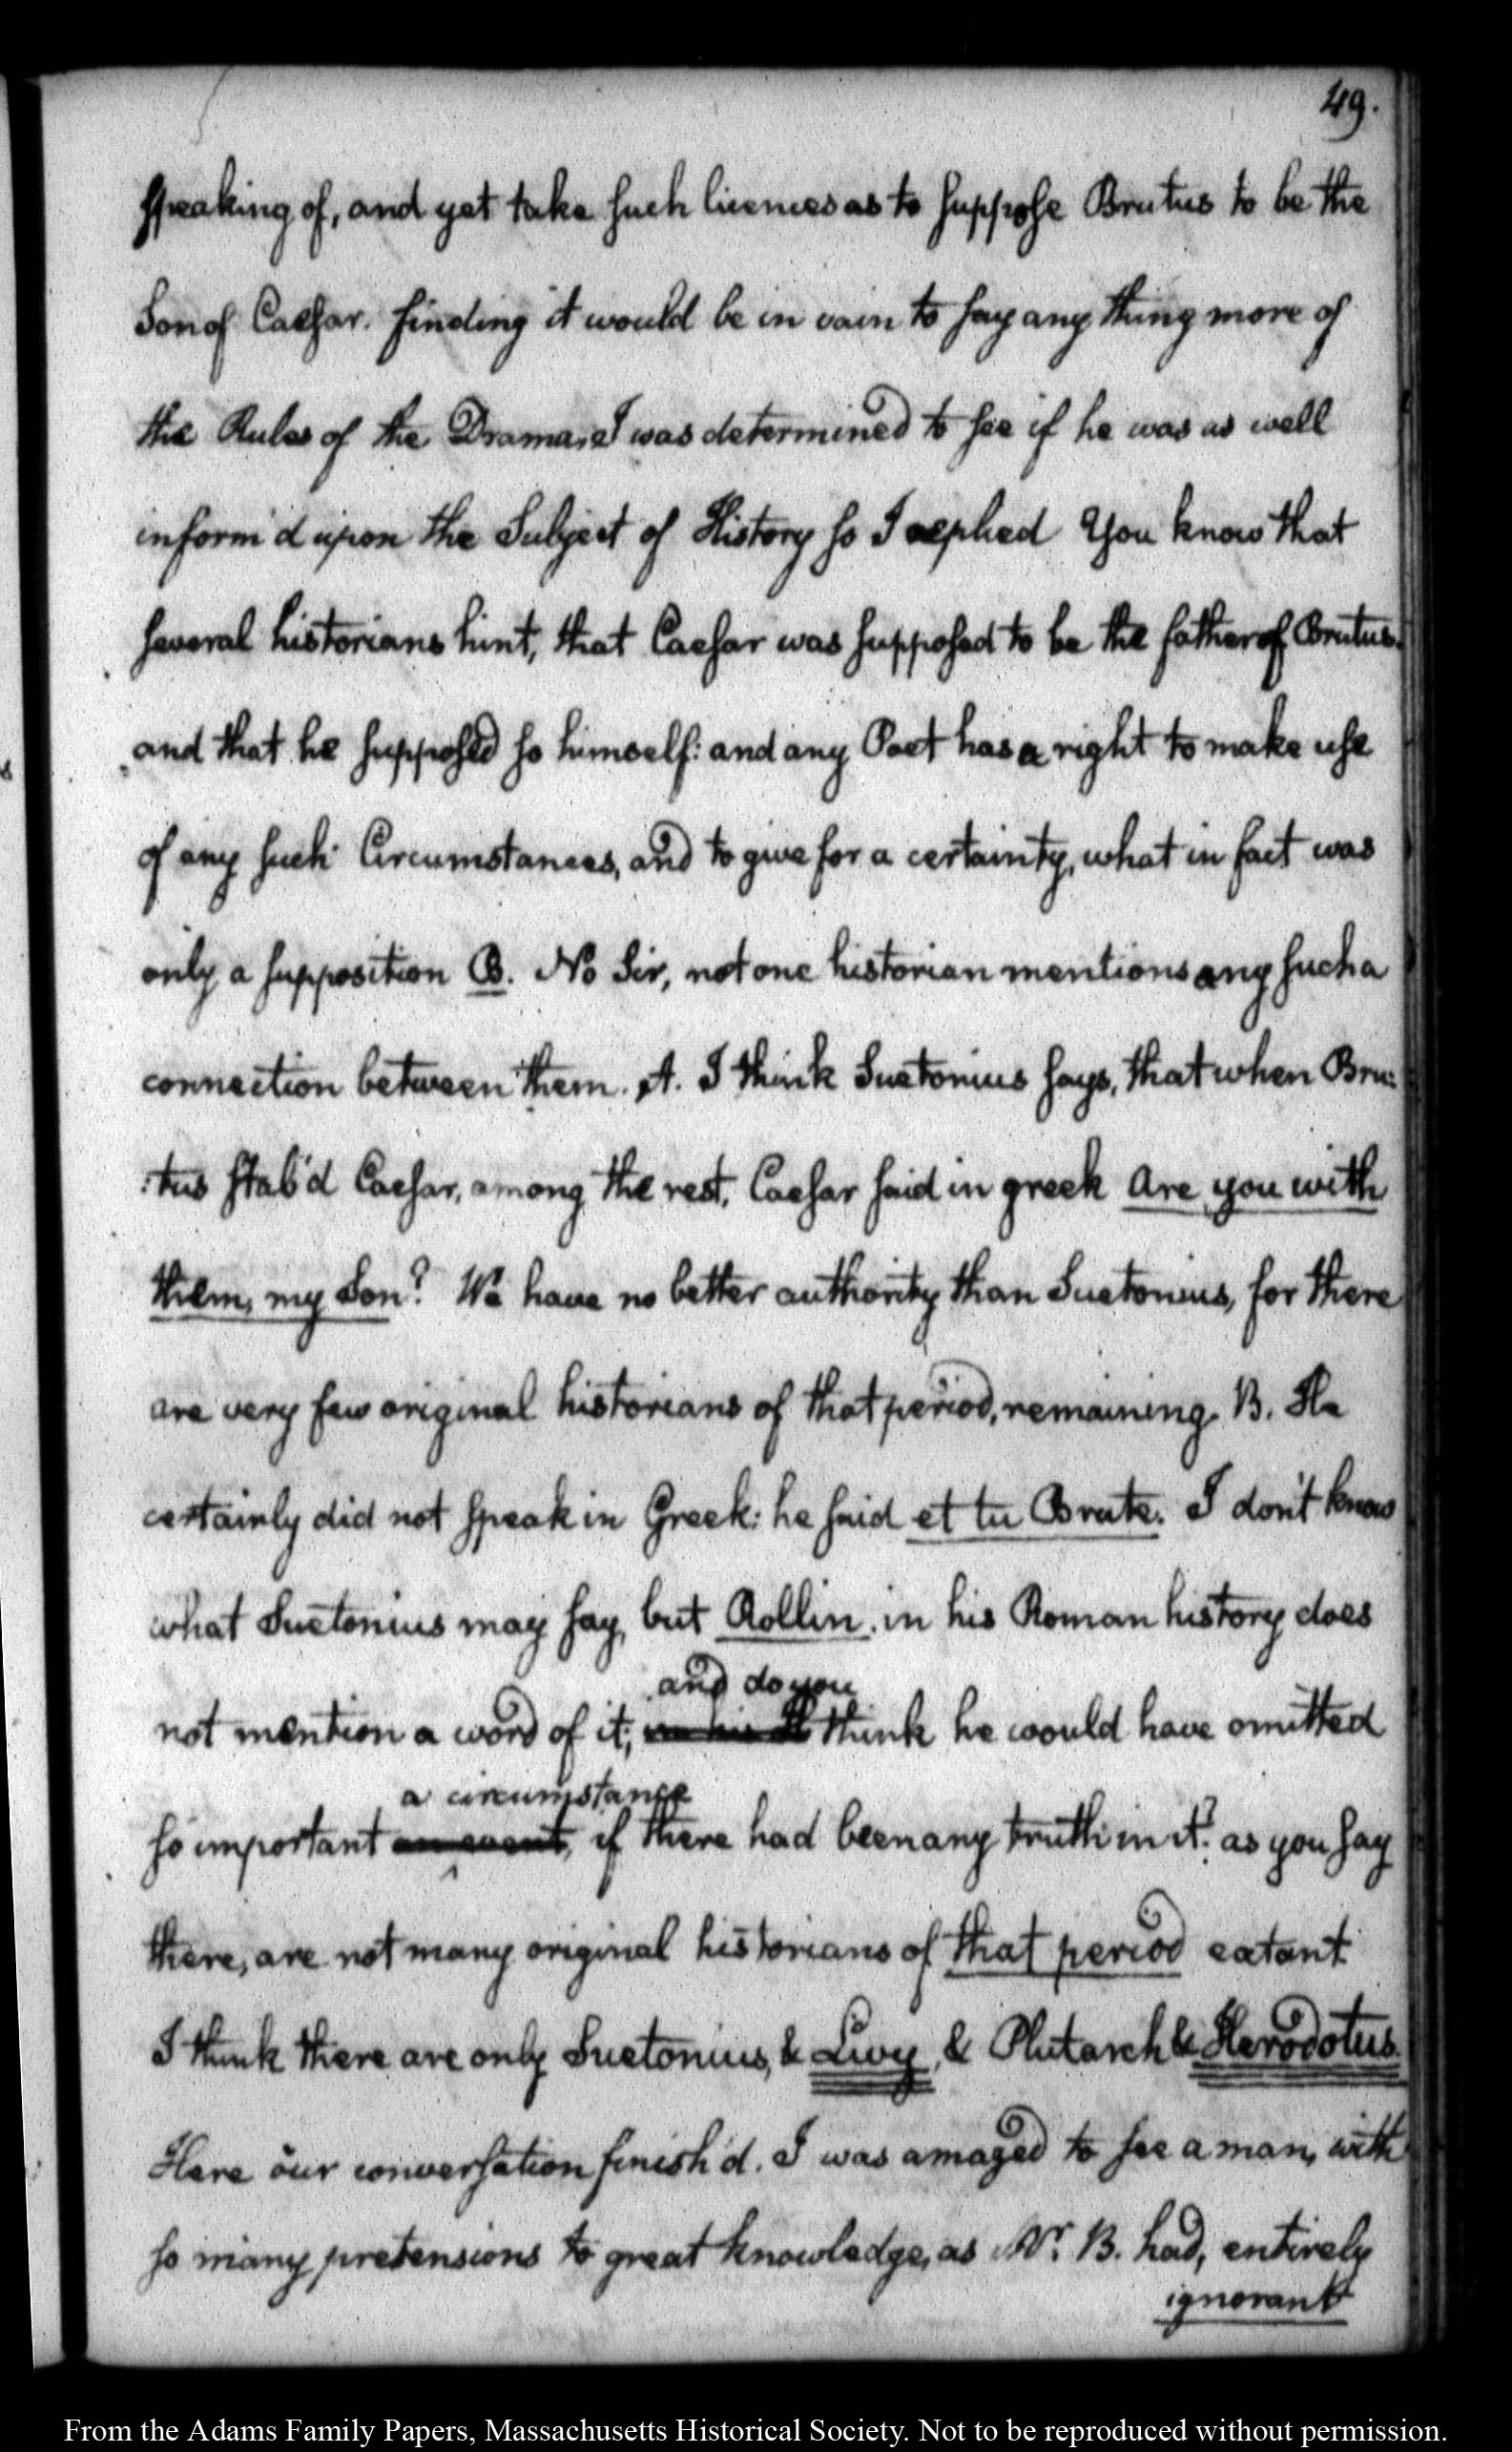 49.
speaking of, and yet take such licences as to suppose Brutus to be the
Son of Caesar. finding it would be in vain to say any thing more of
the Rules of the Drama, I was determined to see if he was as well
inform'd upon the Subject of History so I replied You know that
several historians hint, that Caesar was supposed to be the father of Brutus.
and that he supposed so himself: and any Poet has a right to make use
of any such Circumstances, and to give for a certainty, what in fact was
only a supposition B. No Sir, not one historian mentions any such a
connection between them. A. I think Suetonius says, that when Bru:
:tus stab'd Caesar, among the rest, Caesar said in greek Are you with
them, my Son? We have no better authority than Suetonius, for there
are very few original historians of that period, remaining. B. He
certainly did not speak in Greek: he said et tu Brute. I don't know
what Suetonius may say, but Rollin. in his Roman history does
and do you
not mention a word of it; think he would have omitted
a circumstance
so important an event, if there had been any truth in it? as you say
there, are not many original historians of that period extant
I think there are only Suetonius, & Livy, & Plutarch & Herodotus.
Here our conversation finish'd. I was amazed to see a man, with
so many pretensions to great knowledge, as Mr. B. had, entirely
ignorant
From the Adams Family Papers, Massachusetts Historical Society. Not to be reproduced without permission.